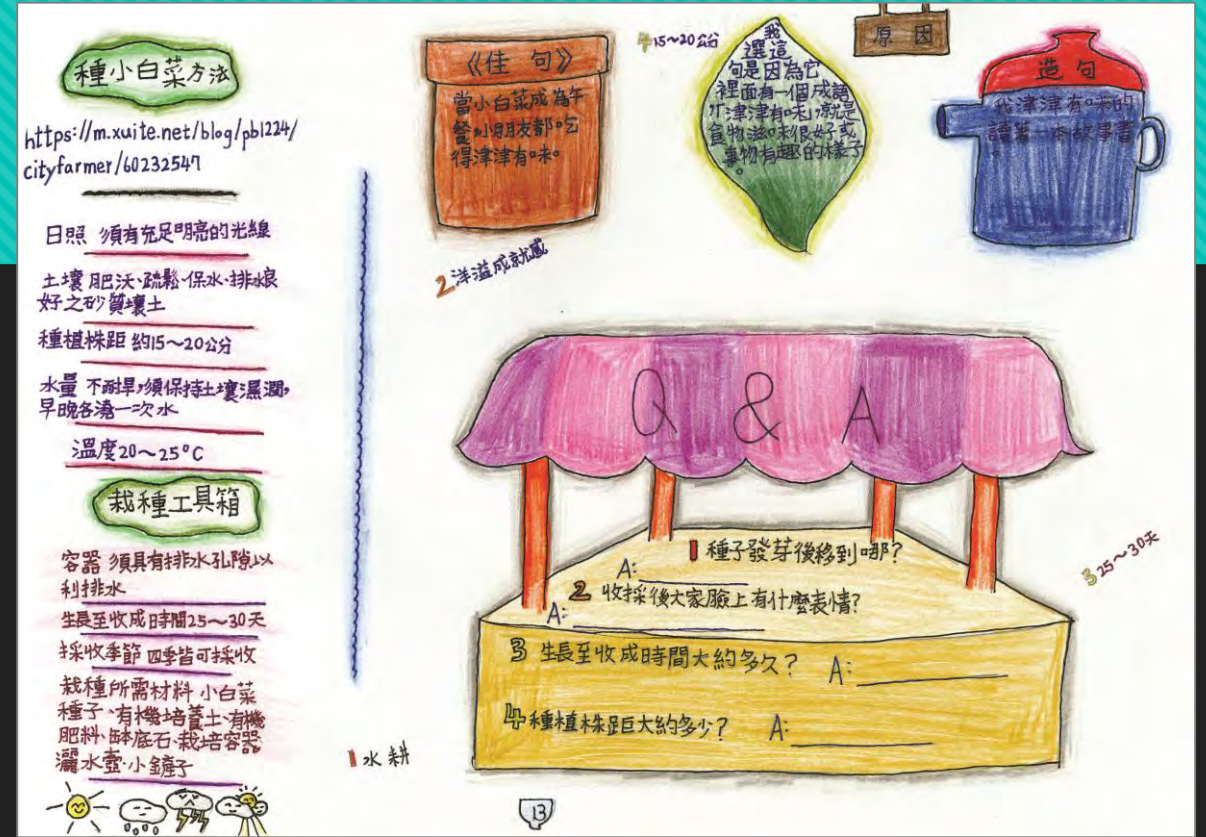 種小白菜方法
https://m.xuite.net/blog/pb1224/
cityfarmer/60232547
日照 須有充足明亮的光線
土壤 肥沃、疏鬆、保水、排水良
好之砂質壤土
種植株距 約15～20公分
水量 不耐旱,須保持土壤濕潤,
早晚各澆一次水
溫度20～25°C
栽種工具箱
容器 須具有排水孔隙以
利排水
生長至收成時間25～30天
採收季節 四季皆可採收
栽種所需材料 小白菜
種子、有機培養土、有機
肥料、缽底石、栽培容器
灑水壺、小鏟子
《佳句》
當小白菜成為午
餐,小朋友都吃
得津津有味。
4 15～20公分
我
選這
句是因為它
裡面有一個成語
「津津有味」,就是
食物滋味很好或
事物有趣的樣子
。
原因
造句
我津津有味的
讀著一本故事書
。
2 洋溢成就感
Q & A
1 種子發芽後移到哪?
A:
2 收採後大家臉上有什麼表情?
A:
3 生長至收成時間大約多久? A:
4 種植株距大約多少? A:
3 25～30天
1 水耕
13